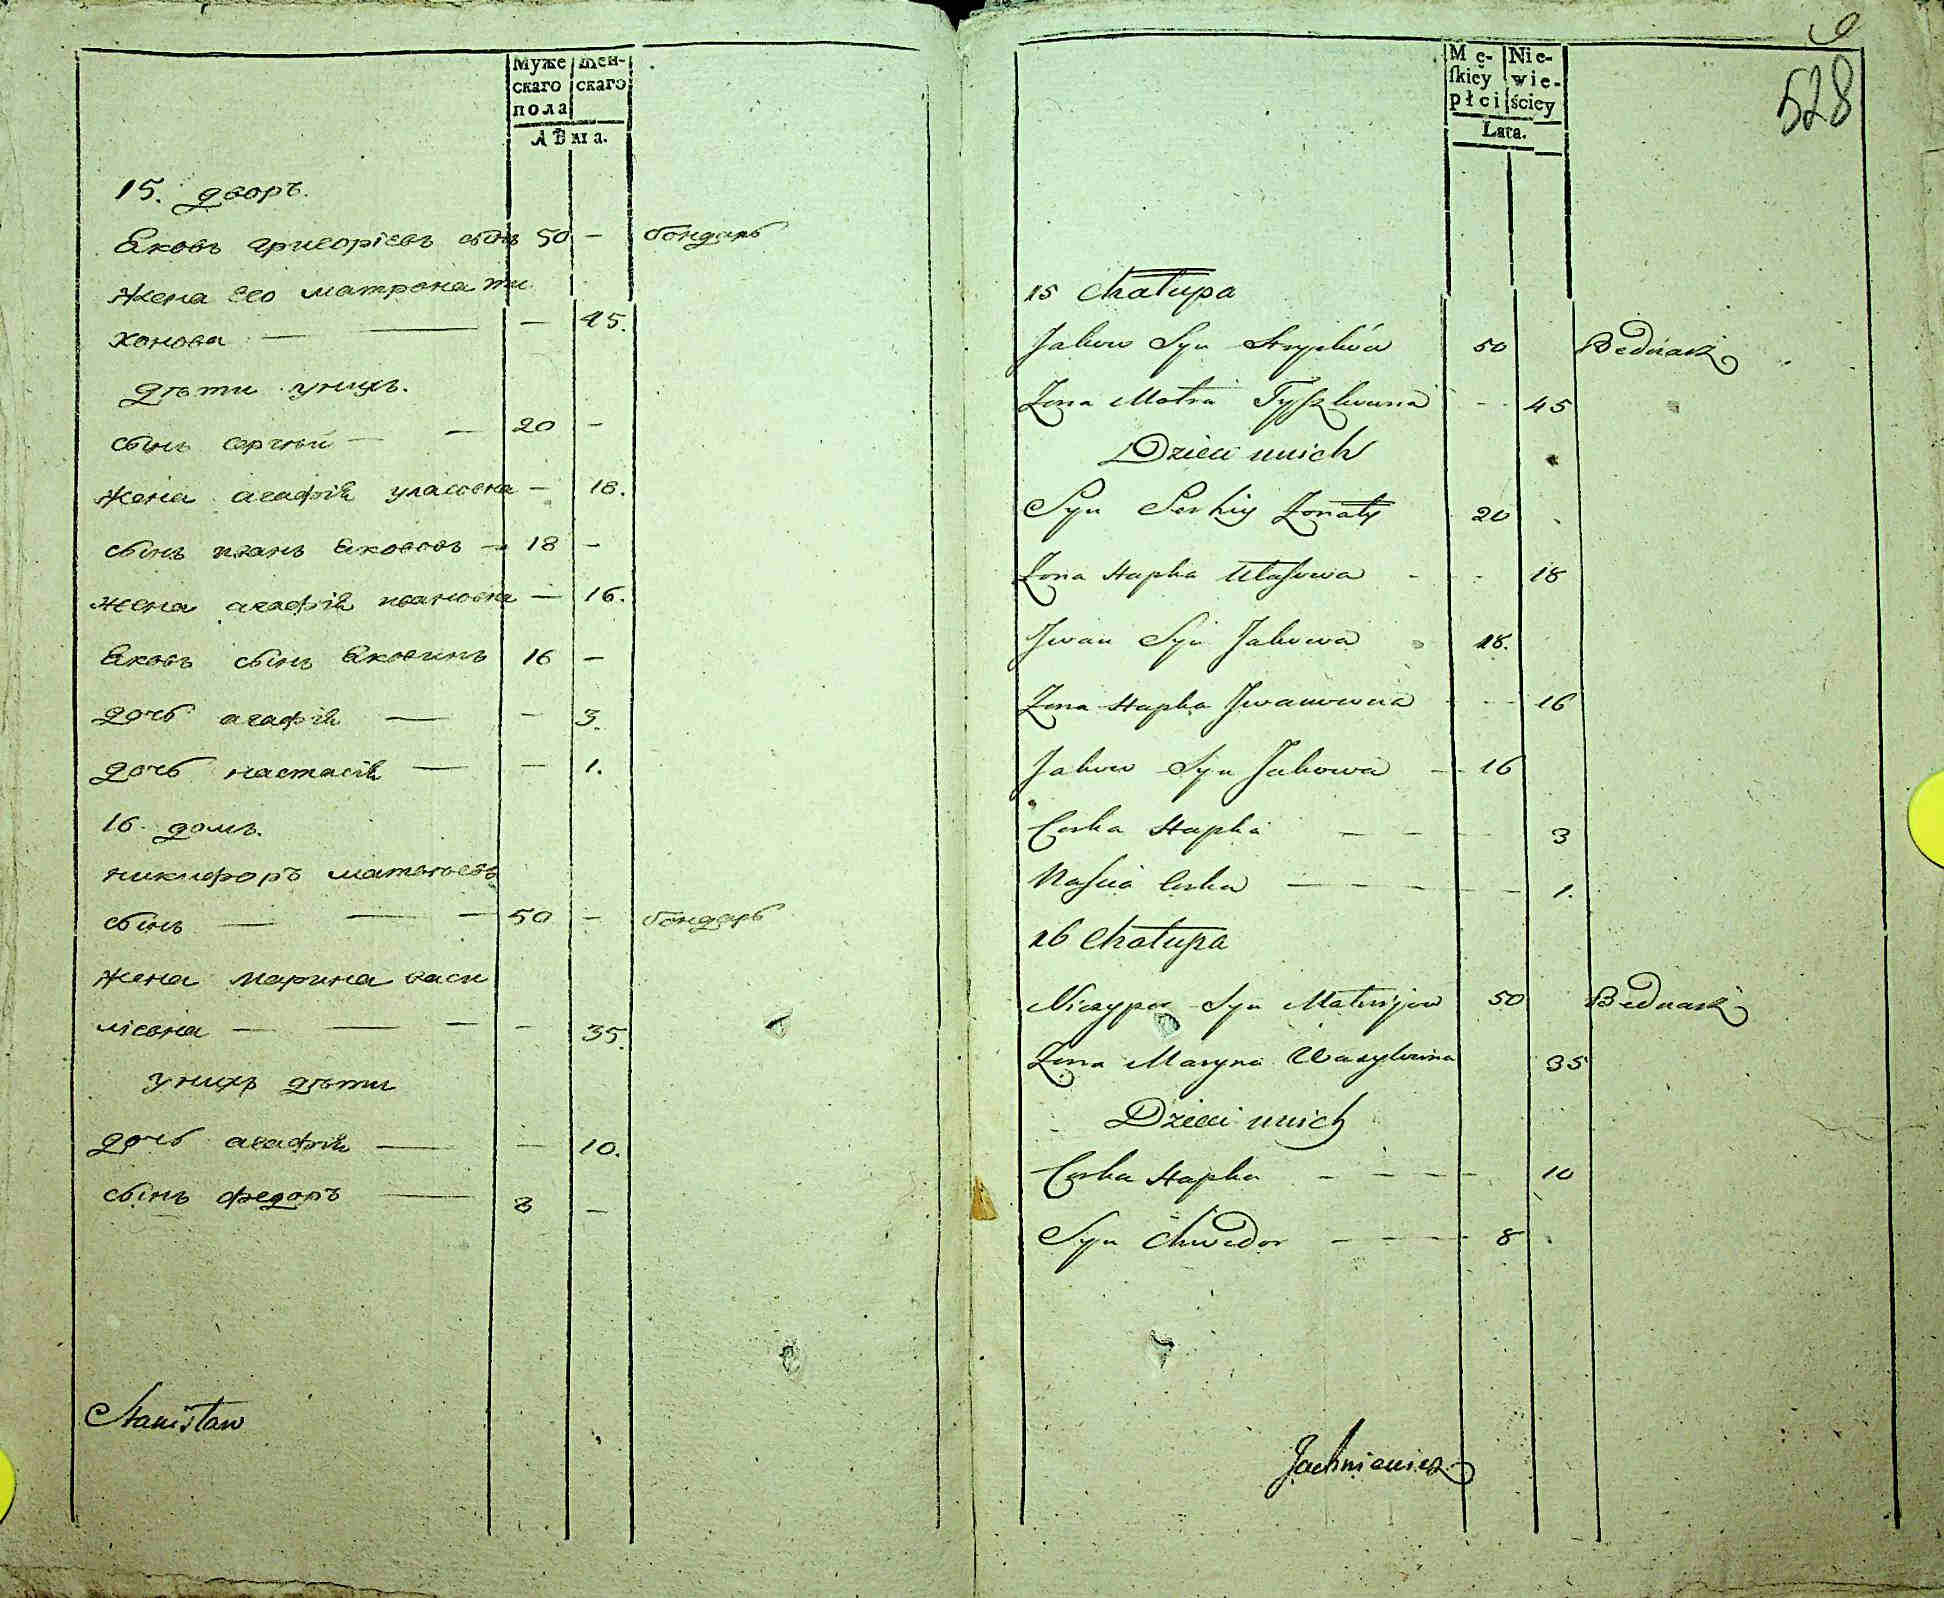 Муже Жен-
скаго скаго
пола
Лѣта.
15. дворъ.
Яковъ григорiевъ сынъ 50 - бондарь
жена его матрона ти
хонова - 45.
дѣти унихъ.
сынъ сергѣй 20 -
жена агафiя уласовна - 18.
сынъ иванъ яковов - 18 -
жена агафiя ивановна - 16.
Яковъ сынъ яковинъ 16 -
дочь агафiя - 3.
дочь настасiя - 1.
16. домъ.
никифоръ матвѣевъ
сынъ 50 - бондарь
жена марина васи
лiевна - 35.
унихъ дѣти
дочь агафiя - 10.
сынъ федоръ 8 -
Stanisław
528
Mę- Nie-
ſkiey wie-
płci ściey
Lata.
15 Chałupa
Jakow Syn 50 Bednarz
Zona Motra 45
Dzieci unich
Syn Serhiy Zonaty 20
Zona Hapka Ułasowa 18
Jwan Syn Jakowa 18.
Zona Hapka Jwanowna 16
Jakow Syn Jakowa 16
Corka Hapka 3
Naścia Corka 1.
16 Chałupa
Niczypor Syn Matwijow 50 Bednarz
Zona Maryna Wasylowna 35
Dzieci unich
Corka Hapka 10
Syn Chwedor 8
Jachniewicz